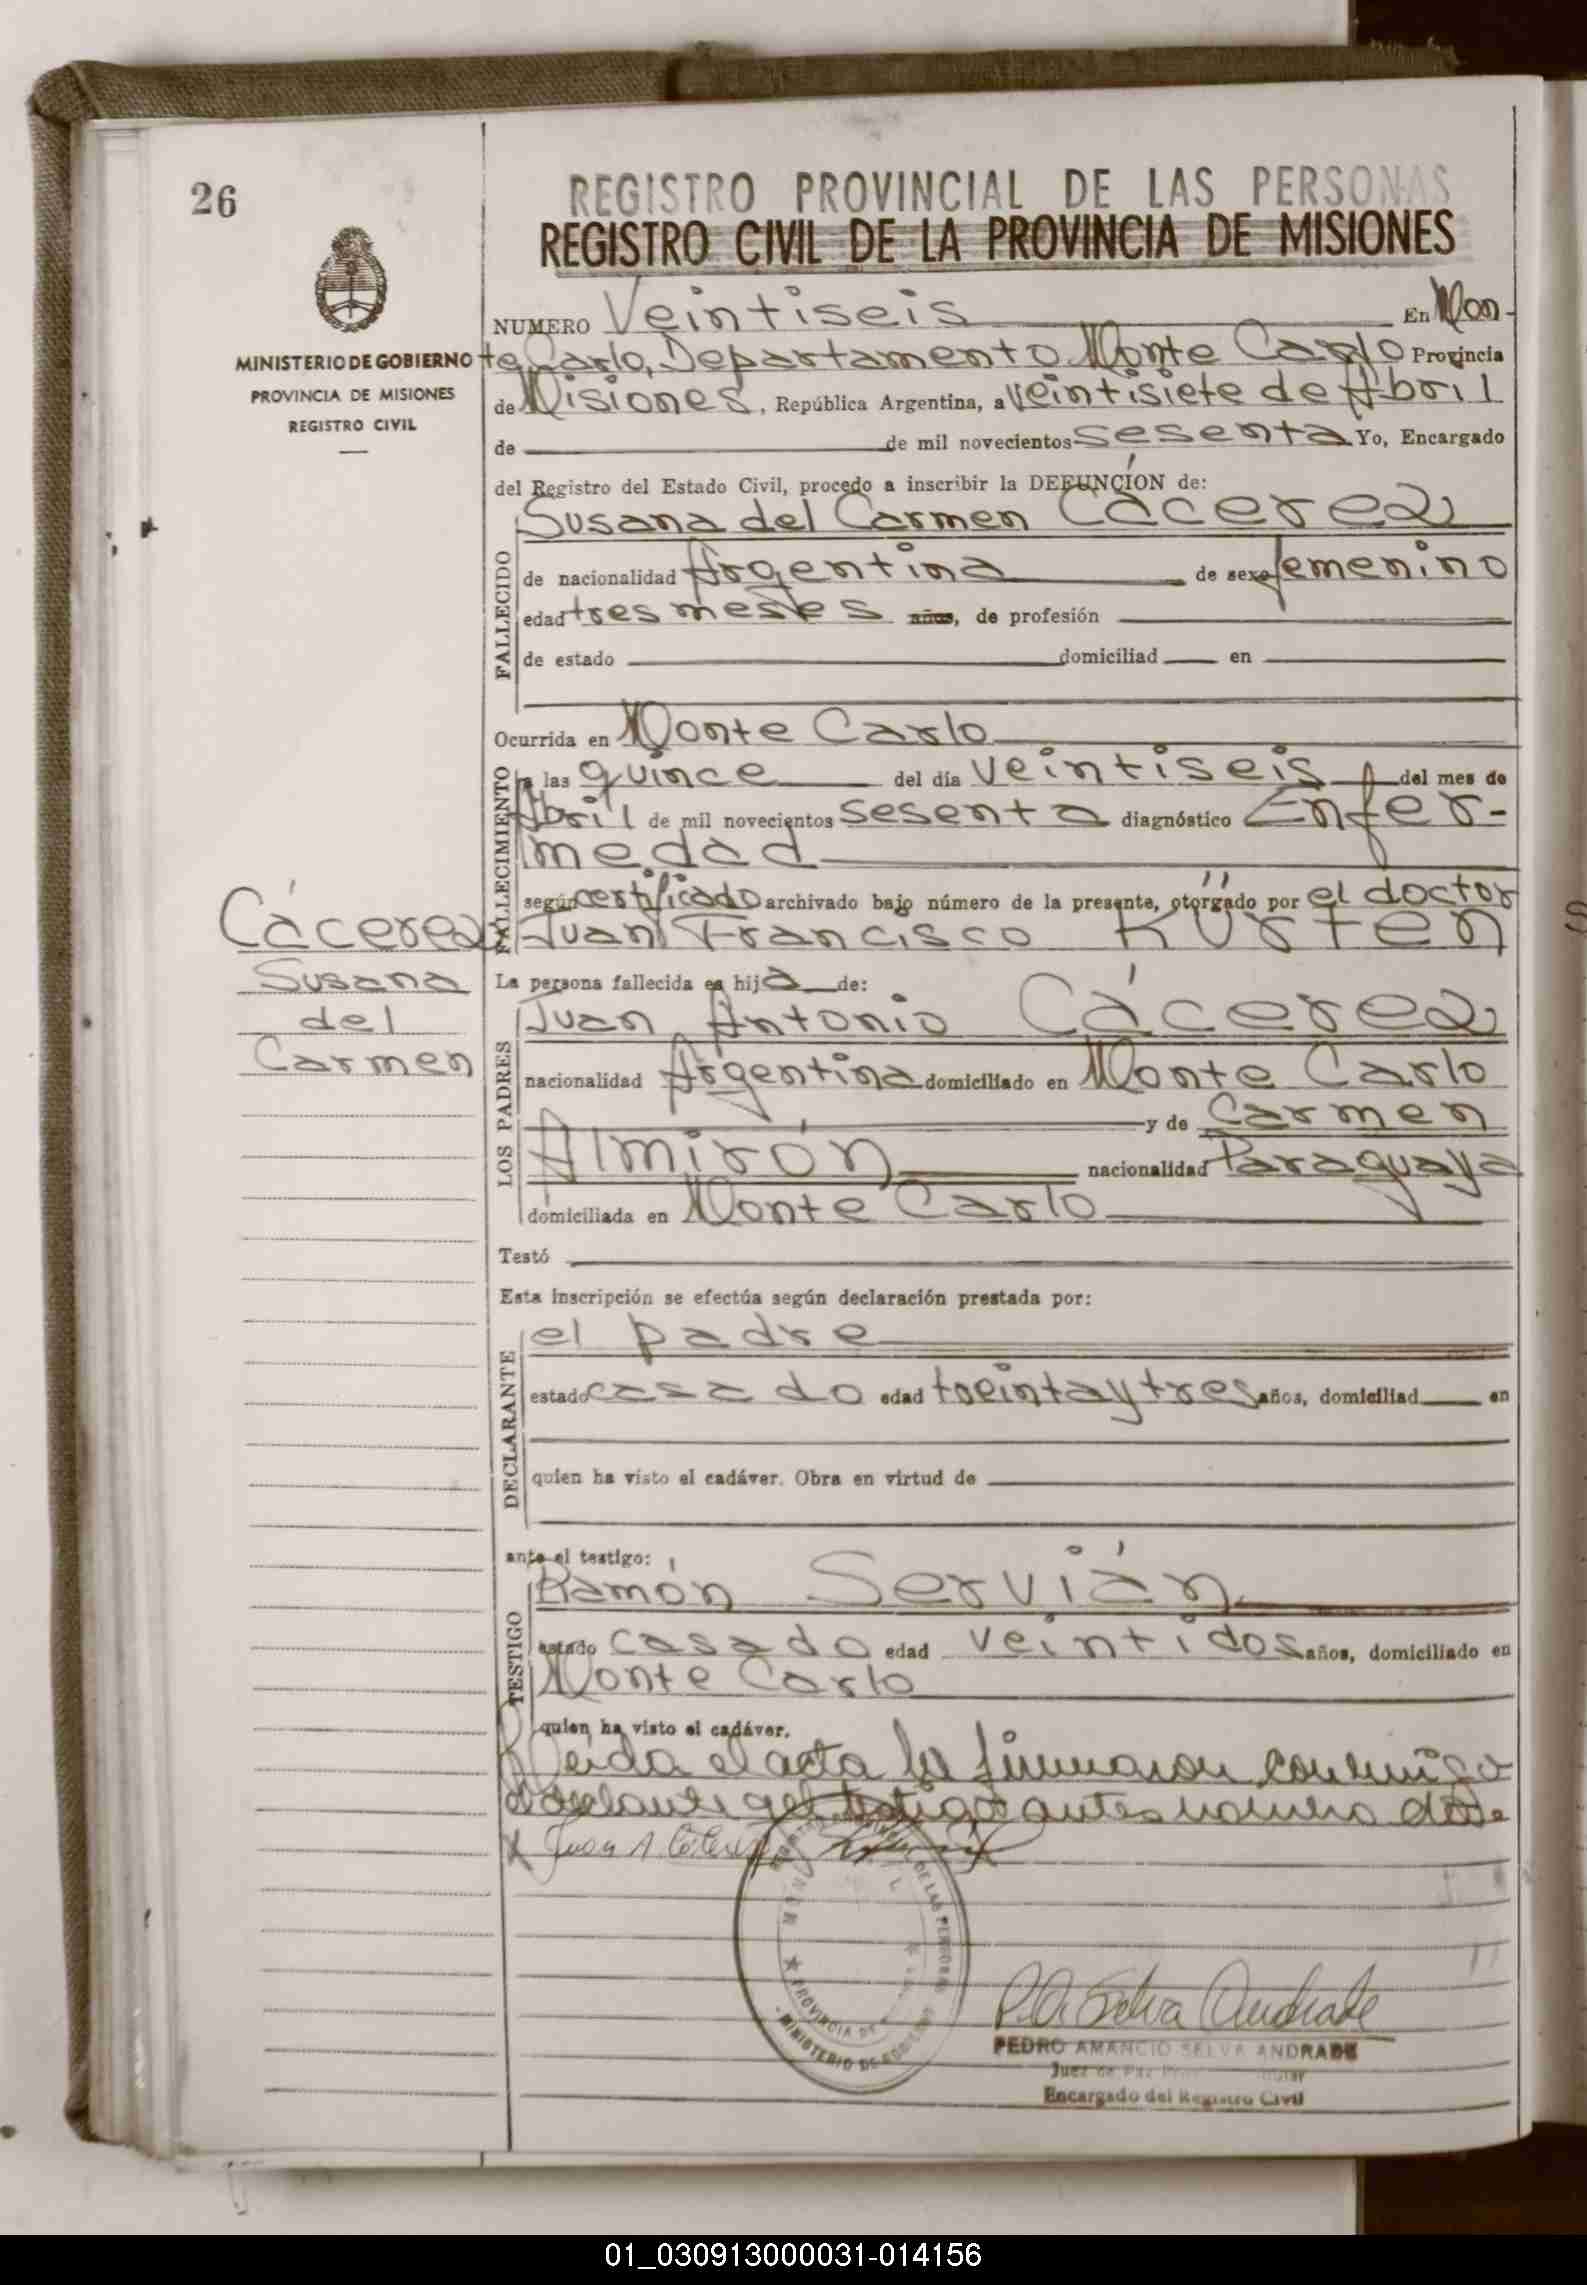 26
REGISTRO PROVINCIAL DE LAS PERSONAS
REGISTRO CIVIL DE LA PROVINCIA DE MISIONES
MINISTERIO DE GOBIERNO
PROVINCIA DE MISIONES
REGISTRO CIVIL
NUMERO Veintiseis En Mon-
te Carlo, Departamento Monte Carlo Provincia
de Misiones, República Argentina, a veintisiete de Abril
de de mil novecientos sesenta Yo, Encargado
del Registro del Estado Civil, procedo a inscribir la DEFUNCION de:
Susana del Carmen Cácerez
FALLECIDO
de nacionalidad Argentina de sexo femenino
edad tres meses años, de profesión
de estado domiciliad en
Ocurrida en Monte Carlo
FALLECIMIENTO
a las quince del día veintiseis del mes de
Abril de mil novecientos sesenta diagnóstico Enfer-
medad
según certificado archivado bajo número de la presente, otorgado por el doctor
Juan Francisco Kürten
Cácerez
Susana
del
Carmen
La persona fallecida es hija de:
LOS PADRES
Juan Antonio Cácerez
nacionalidad Argentina domiciliado en Monte Carlo
y de Carmen
Almirón nacionalidad Paraguaya
domiciliada en Monte Carlo
Testó
Esta inscripción se efectúa según declaración prestada por:
DECLARANTE
el padre
estado casado edad treinta y tres años, domiciliad en
quien ha visto el cadáver. Obra en virtud de
ante el testigo:
TESTIGO
Ramón Servián
estado casado edad veintidos años, domiciliado en
Monte Carlo
quien ha visto el cadáver.
Leida el acta la firmaron conmigo
el declarante y el testigo antes nombrado
x Juan A
PROVINCIA DE
MINISTERIO DE GOBIERNO
DE LAS PERSONAS
P. A. Selva Andrade
PEDRO AMANCIO SELVA ANDRADE
Juez de Paz
Encargado del Registro Civil
01_030913000031-014156